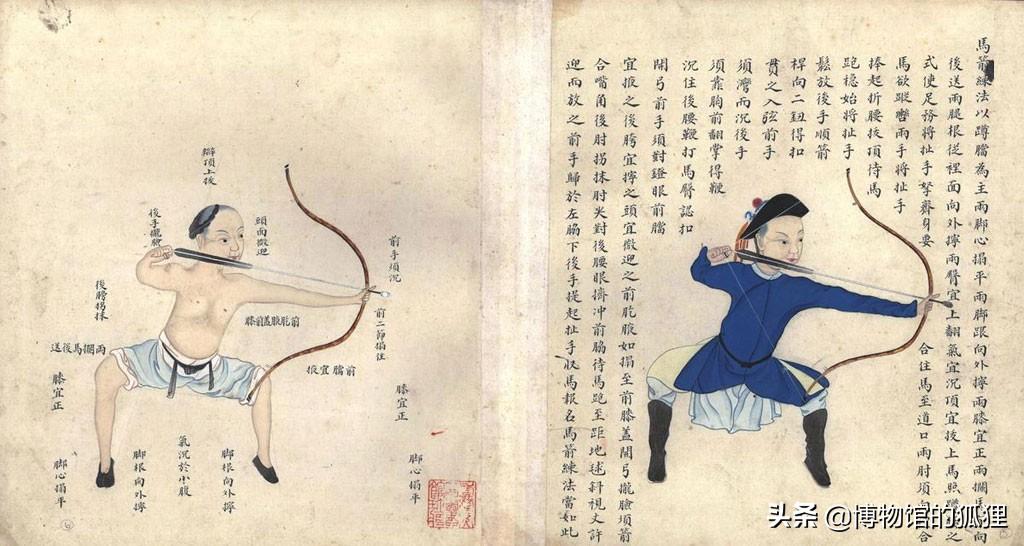 馬箭練法以蹲臁為主兩脚心搨平兩脚跟向外擰兩膝宜正兩擱馬向
後送兩腿根從裡面向外擰兩臀宜上翻氣宜沉頂宜拔上馬照蹲之
式使足務將扯手拏齊身要
合住馬至道口兩肘須向合
馬欲躥轡兩手將扯手
捧起折腰拔頂待馬
跑穩始將扯手
鬆放後手順箭
桿向二鈕得扣
貫之入弦前手
須灣而沉後手
須靠胸前翻掌得鞭
沉住後腰鞭打馬臀認扣
開弓前手須對鐙眼前臁
宜掖之後胯宜擰之頭宜微迎之前肐腋如搨至前膝蓋開弓攏臉項箭
合嘴角後肘拐抹肘尖對後腰眼擠冲前脇待馬跑至距地毬斜視丈許
迎而放之前手歸於左脇下後手提起扯手收馬報名馬箭練法當如此
前手須沉
前二節搨住
頭面微迎
辮頂上拔
後手攏臉
後膀拐抹
前肐腋蓋前膝
前臁宜掖
兩擱馬後送
膝宜正
膝宜正
脚心搨平
脚根向外擰
氣沉於小腹
脚根向外擰
脚心搨平
头条 @博物馆的狐狸